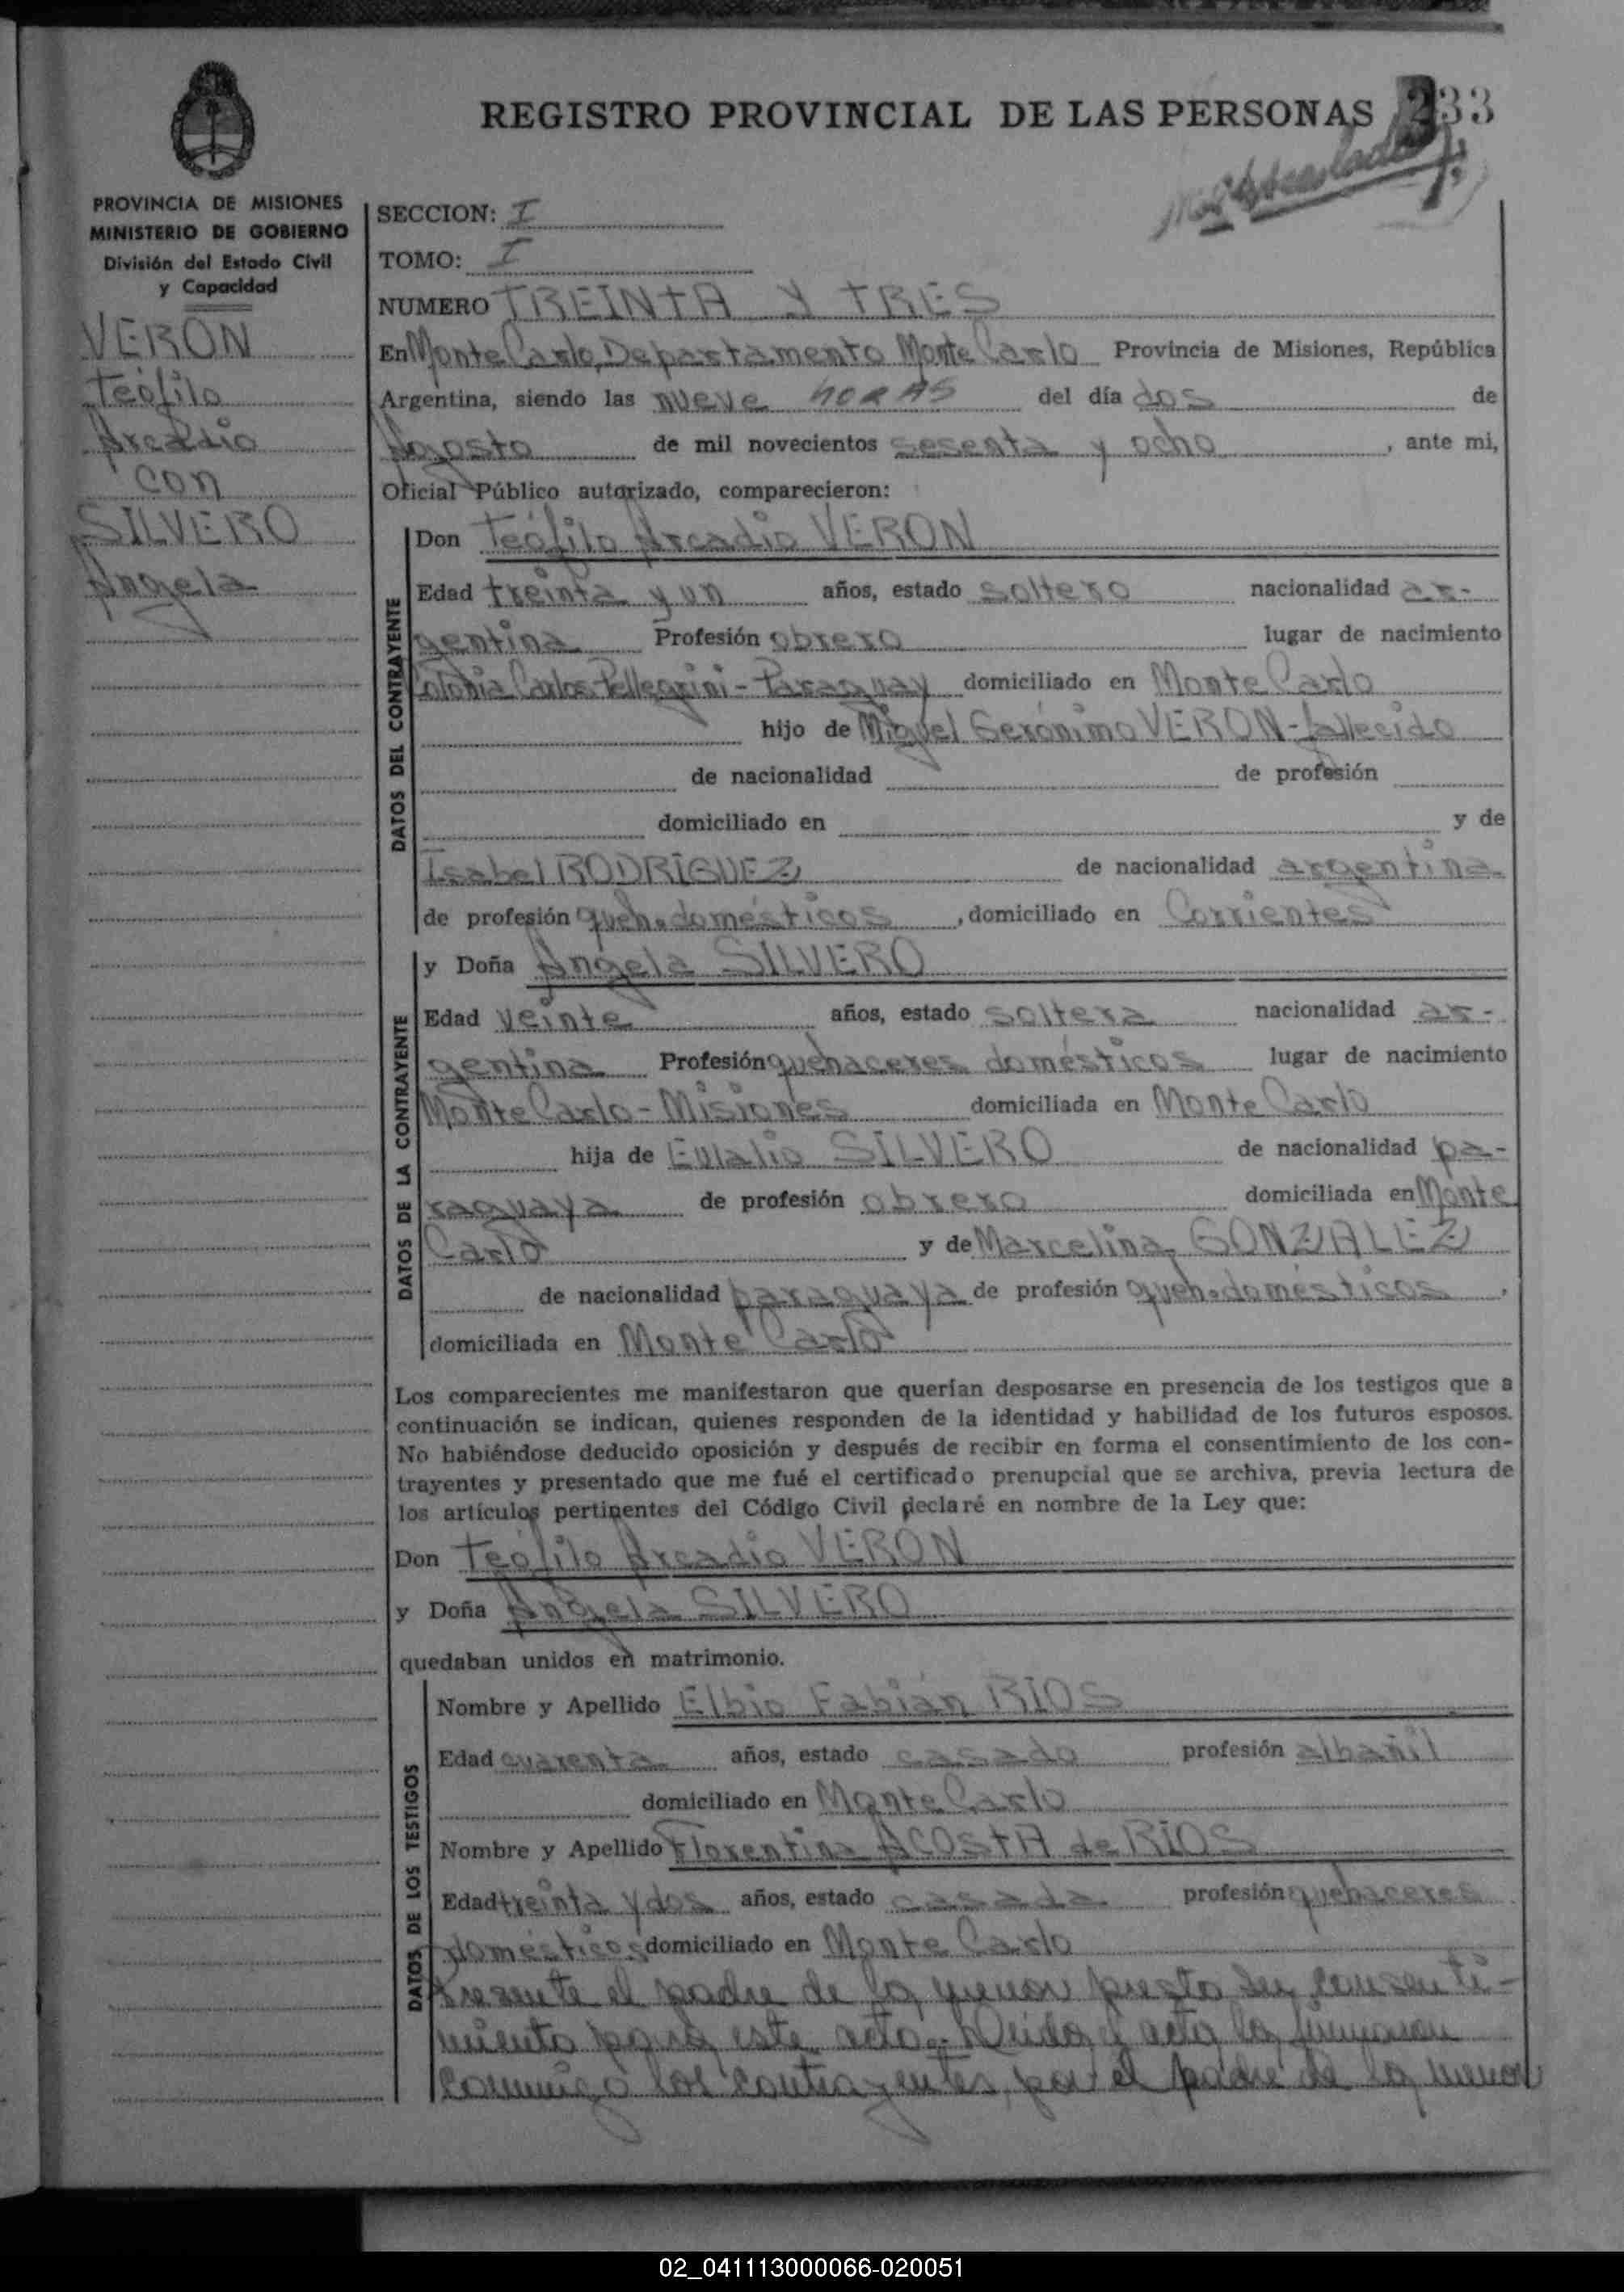 REGISTRO PROVINCIAL DE LAS PERSONAS 233
PROVINCIA DE MISIONES
MINISTERIO DE GOBIERNO
División del Estado Civil
y Capacidad
VERON
Teófilo
Arcadio
con
SILVERO
Angela
SECCION: I
TOMO: I
NUMERO TREINTA Y TRES
En Monte Carlo, Departamento Monte Carlo Provincia de Misiones, República
Argentina, siendo las nueve horas del día dos de
Agosto de mil novecientos sesenta y ocho, ante mi,
Oficial Público autorizado, comparecieron:
DATOS DEL CONTRAYENTE
Don Teófilo Arcadio VERON
Edad treinta y un años, estado soltero nacionalidad ar-
gentina Profesión obrero lugar de nacimiento
Colonia Carlos Pellegrini - Paraguay domiciliado en Monte Carlo
hijo de Miguel Gerónimo VERON - fallecido
de nacionalidad de profesión
domiciliado en y de
Isabel RODRÍGUEZ de nacionalidad argentina
de profesión queh. domésticos, domiciliado en Corrientes
DATOS DE LA CONTRAYENTE
y Doña Angela SILVERO
Edad veinte años, estado soltera nacionalidad ar-
gentina Profesión quehaceres domésticos lugar de nacimiento
Monte Carlo - Misiones domiciliada en Monte Carlo
hija de Eulalio SILVERO de nacionalidad pa-
raguaya de profesión obrero domiciliada en Monte
Carlo y de Marcelina GONZALEZ
de nacionalidad paraguaya de profesión queh. domésticos,
domiciliada en Monte Carlo
Los comparecientes me manifestaron que querían desposarse en presencia de los testigos que a
continuación se indican, quienes responden de la identidad y habilidad de los futuros esposos.
No habiéndose deducido oposición y después de recibir en forma el consentimiento de los con-
trayentes y presentado que me fué el certificado prenupcial que se archiva, previa lectura de
los artículos pertinentes del Código Civil declaré en nombre de la Ley que:
Don Teófilo Arcadio VERON
y Doña Angela SILVERO
quedaban unidos en matrimonio.
DATOS DE LOS TESTIGOS
Nombre y Apellido Elbio Fabián RIOS
Edad cuarenta años, estado casado profesión albañil
domiciliado en Monte Carlo
Nombre y Apellido Florentina ACOSTA de RIOS
Edad treinta y dos años, estado casada profesión quehaceres
domésticos domiciliado en Monte Carlo
Presente el padre de la menor presta su consenti-
miento para este acto.- Leída el acta la firmaron
conmigo los contrayentes, por el padre de la menor
02_041113000066-020051